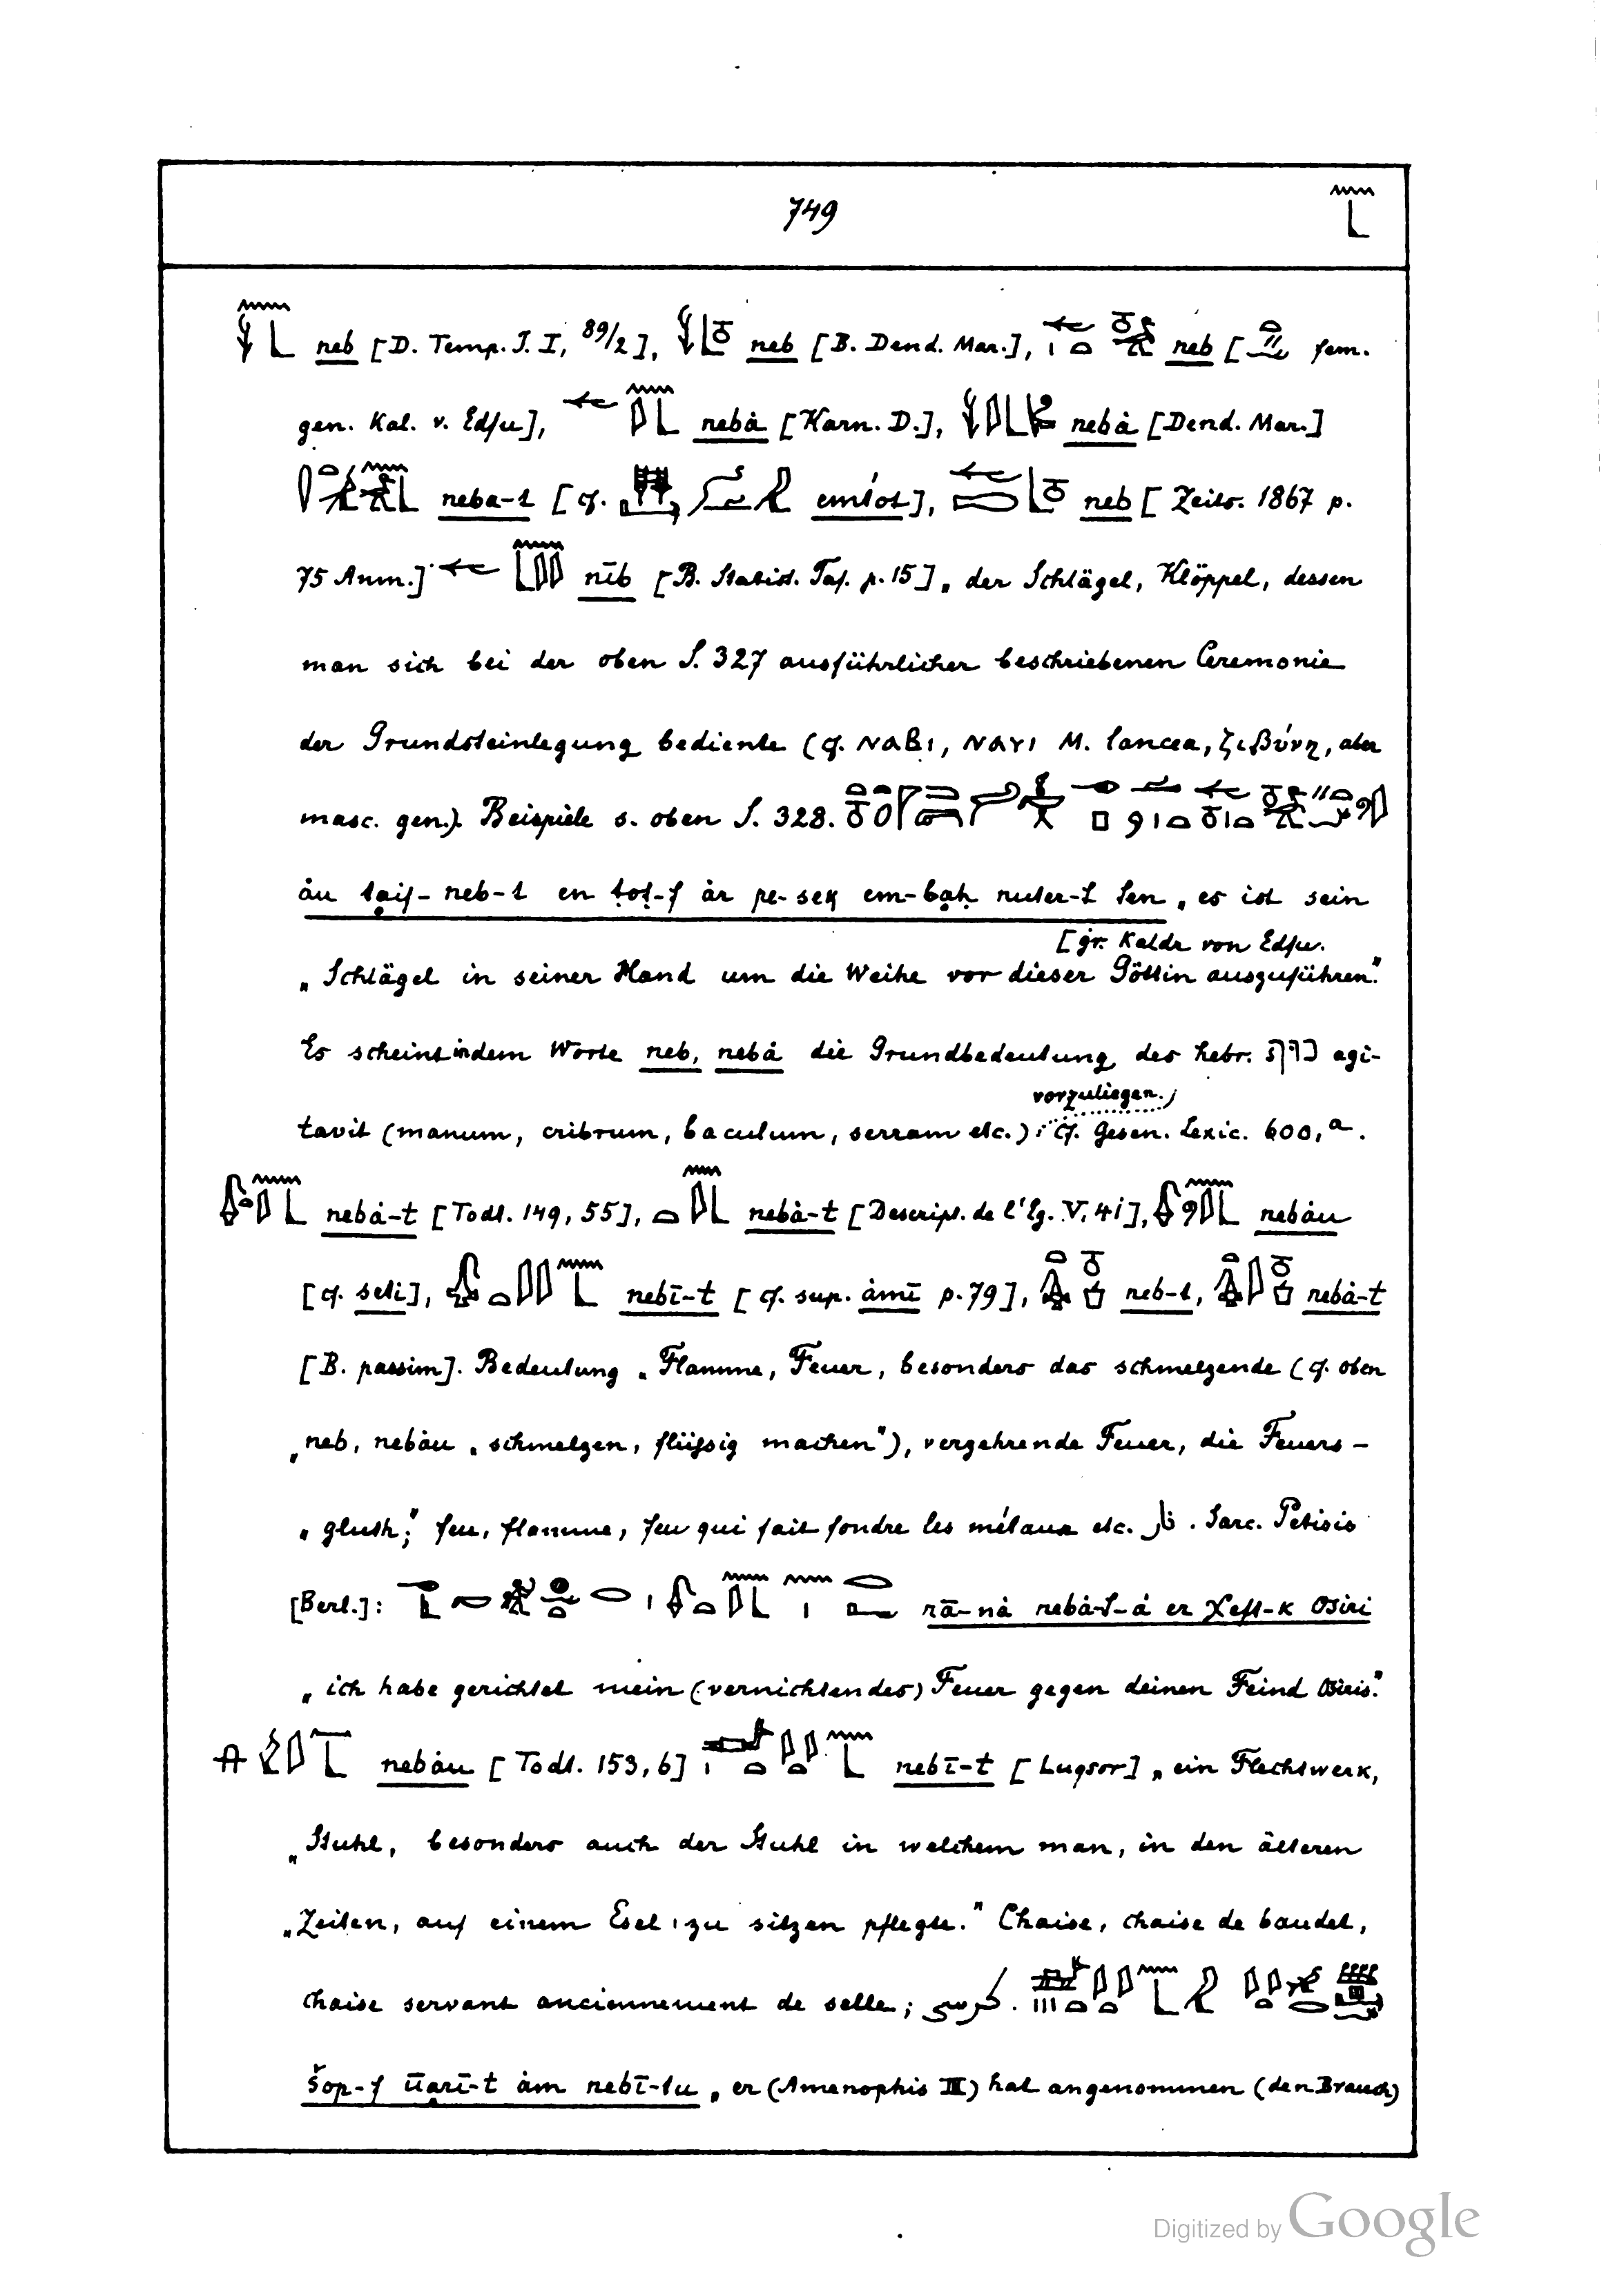 749
neb [D. Temp. I. I, 89/2], neb [B. Dend. Mar.], neb [ fem.
gen. Kal. v. Edfu], nebȧ [Karn. D.], nebȧ [Dend. Mar.]
neba-t [cf. emtot], neb [Zeits. 1867 p.
75 Anm.] nīb [B. Statist. Taf. p. 15] „der Schlägel, Klöppel, dessen
man sich bei der oben S. 327 ausführlicher beschriebenen Ceremonie
der Grundsteinlegung bediente (cf. ⲛⲁⲃⲓ, ⲛⲁⲩⲓ M. lancea, ζιβύνη, aber
masc. gen.). Beispiele s. oben S. 328.
ȧu taif-neb-t en tot-f ȧr pe-sek em-baḥ nuter-t ten „es ist sein
[gr. Kaldr von Edfu.
„Schlägel in seiner Hand um die Weihe vor dieser Göttin auszuführen.“
Es scheint in dem Worte neb, nebȧ die Grundbedeutung des hebr. נוף agi-
vorzuliegen.
tavit (manum, cribrum, baculum, serram etc.) cf. Gesen. Lexic. 600, a.
nebȧ-t [Todt. 149, 55], nebȧ-t [Descript. de l'Eg. V, 41], nebȧu
[cf. seti], nebī-t [cf. sup. ȧmī p. 79], neb-t, nebȧ-t
[B. passim]. Bedeutung „Flamme, Feuer, besonders das schmelzende (cf. oben
„neb, nebȧu „schmelzen, flüssig machen“), verzehrende Feuer, die Feuers-
„gluth;“ feu, flamme, feu qui fait fondre les métaux etc. نار. Sarc. Petisis
[Berl.]: rā-nȧ nebȧ-t-ȧ er χeft-k Osiri
„ich habe gerichtet mein (vernichtendes) Feuer gegen deinen Feind Osiris.“
nebȧu [Todt. 153, 6] nebī-t [Luqsor] „ein Flechtwerk,
„Stuhl, besonders auch der Stuhl in welchem man, in den älteren
„Zeiten, auf einem Esel zu sitzen pflegte.“ Chaise, chaise de baudet,
chaise servant anciennement de selle; كرسى.
šop-f ūarī-t ȧm nebī-tu „er (Amenophis III) hat angenommen (den Brauch)
Digitized by Google